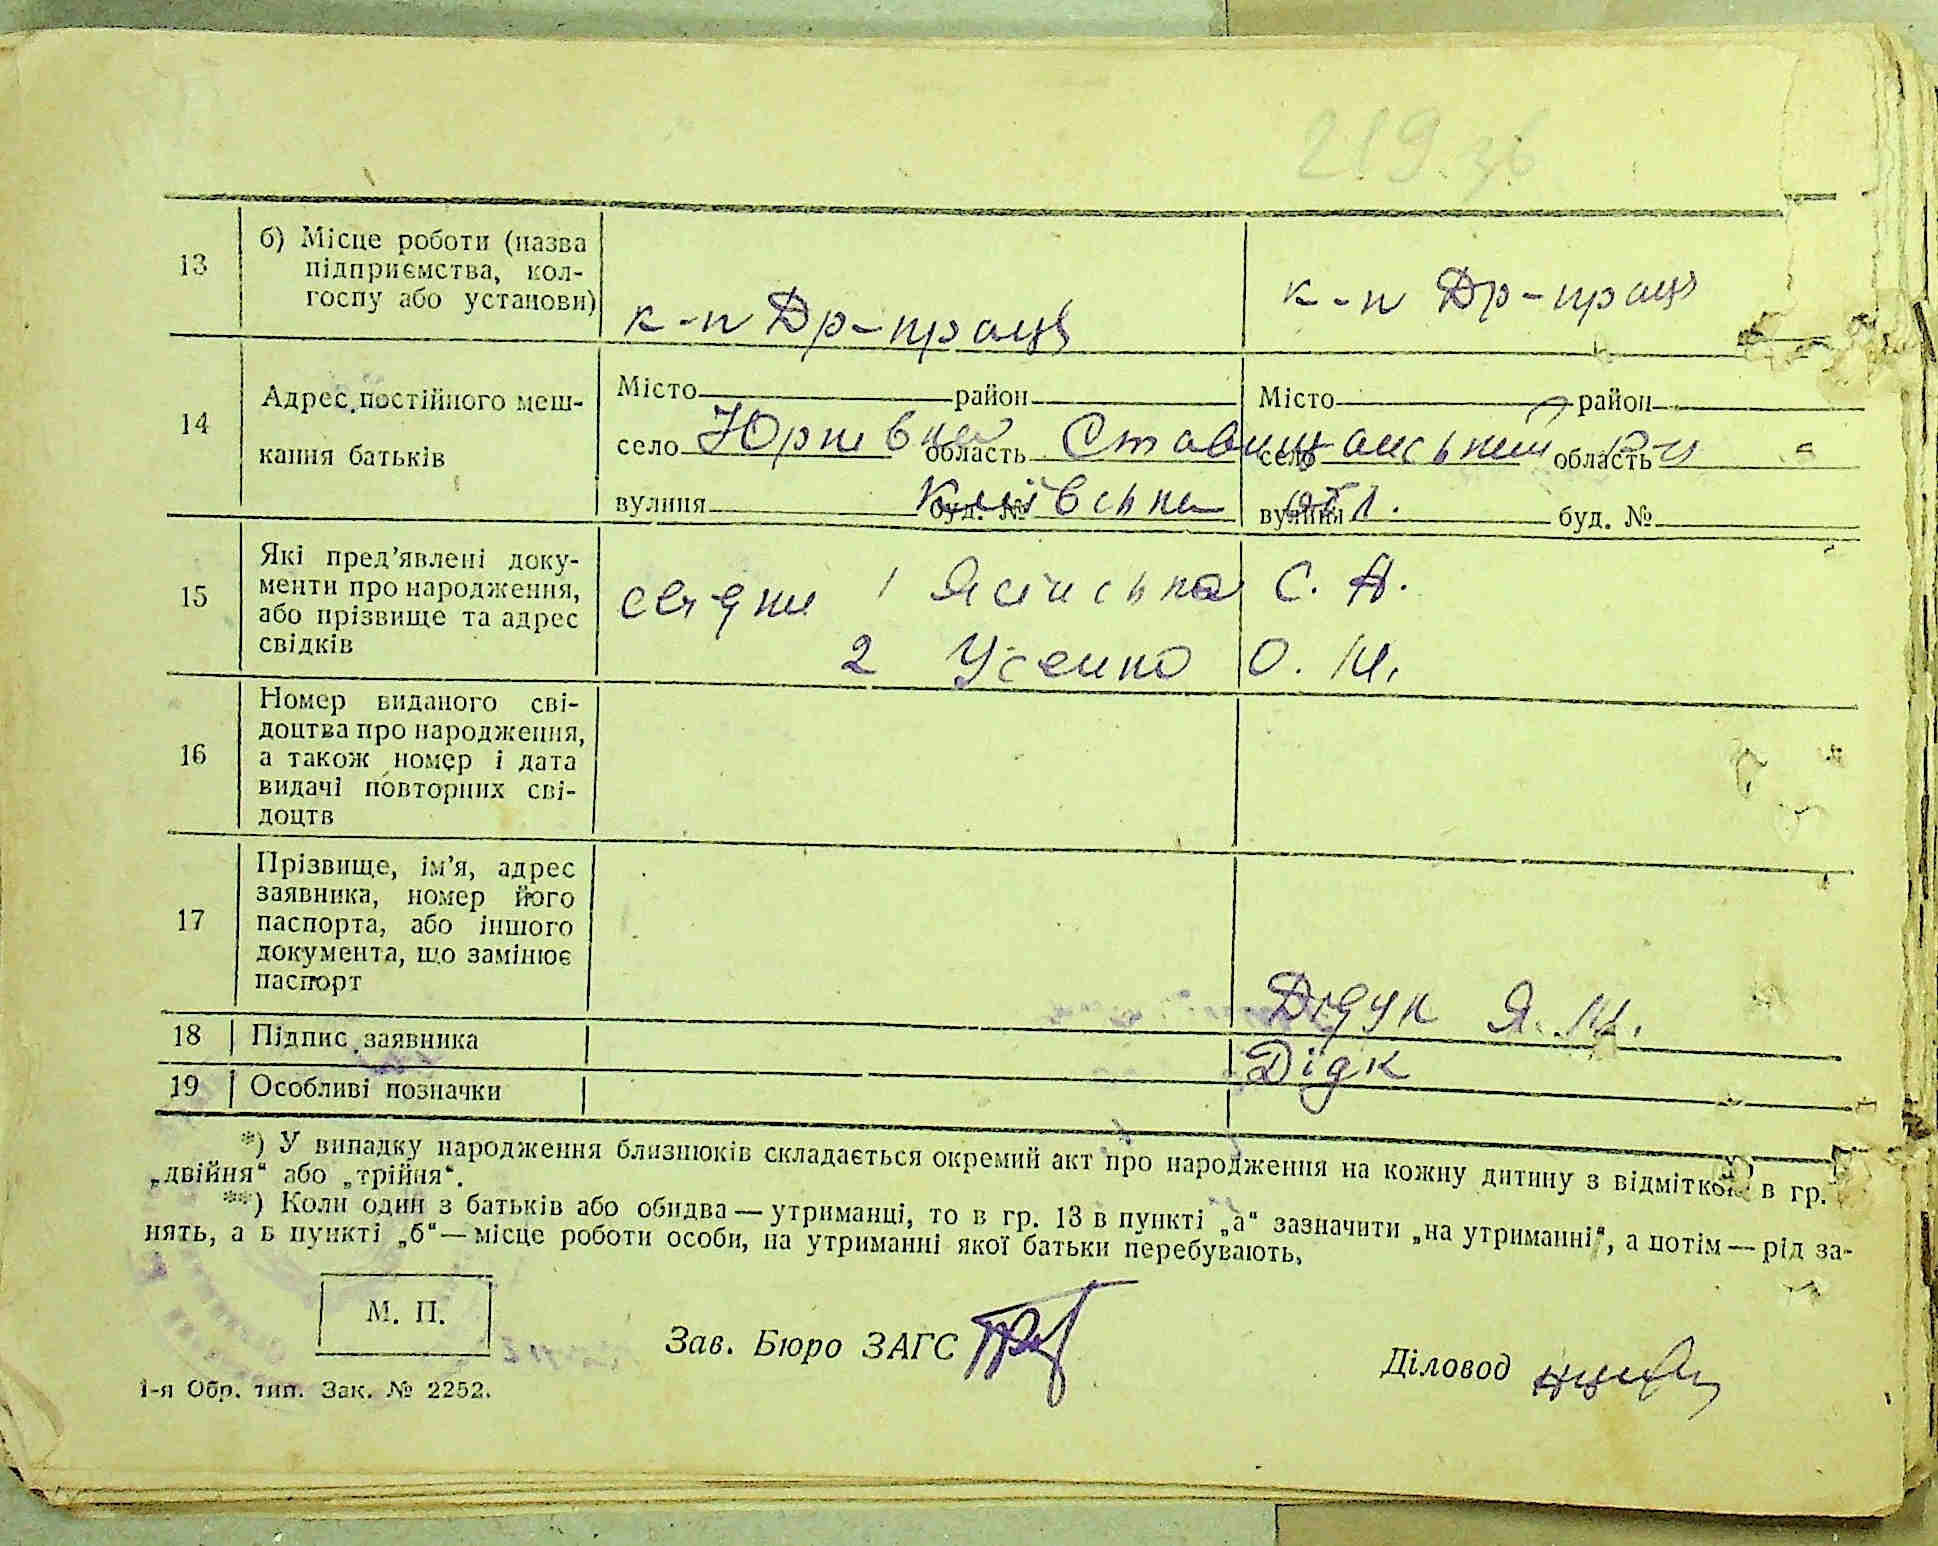 219 зв
13
б) Місце роботи (назва
підприємства, кол-
госпу або установи)
к-п Др-праці
к-п Др-праці
14
Адрес постійного меш-
кання батьків
Місто район
Місто район
село Юрківка область Ставищанський р-н
село область
вулиця буд. №
Київська обл.
вулиця буд. №
15
Які пред’явлені доку-
менти про народження,
або прізвище та адрес
свідків
свідки 1 Ясінська С. А.
2 Усенко О. М.
16
Номер виданого сві-
доцтва про народження,
а також номер і дата
видачі повторних сві-
доцтв
17
Прізвище, ім’я, адрес
заявника, номер його
паспорта, або іншого
документа, що замінює
паспорт
Дідук Я. М.
18 Підпис заявника
Дідк
19 Особливі позначки
*) У випадку народження близнюків складається окремий акт про народження на кожну дитину з відміткою в гр.
„двійня“ або „трійня“.
**) Коли один з батьків або обидва — утриманці, то в гр. 13 в пункті „а“ зазначити „на утриманні“, а потім — рід за-
нять, а в пункті „б“ — місце роботи особи, на утриманні якої батьки перебувають,
М. П.
Зав. Бюро ЗАГС
Діловод
1-я Обр. тип. Зак. № 2252.